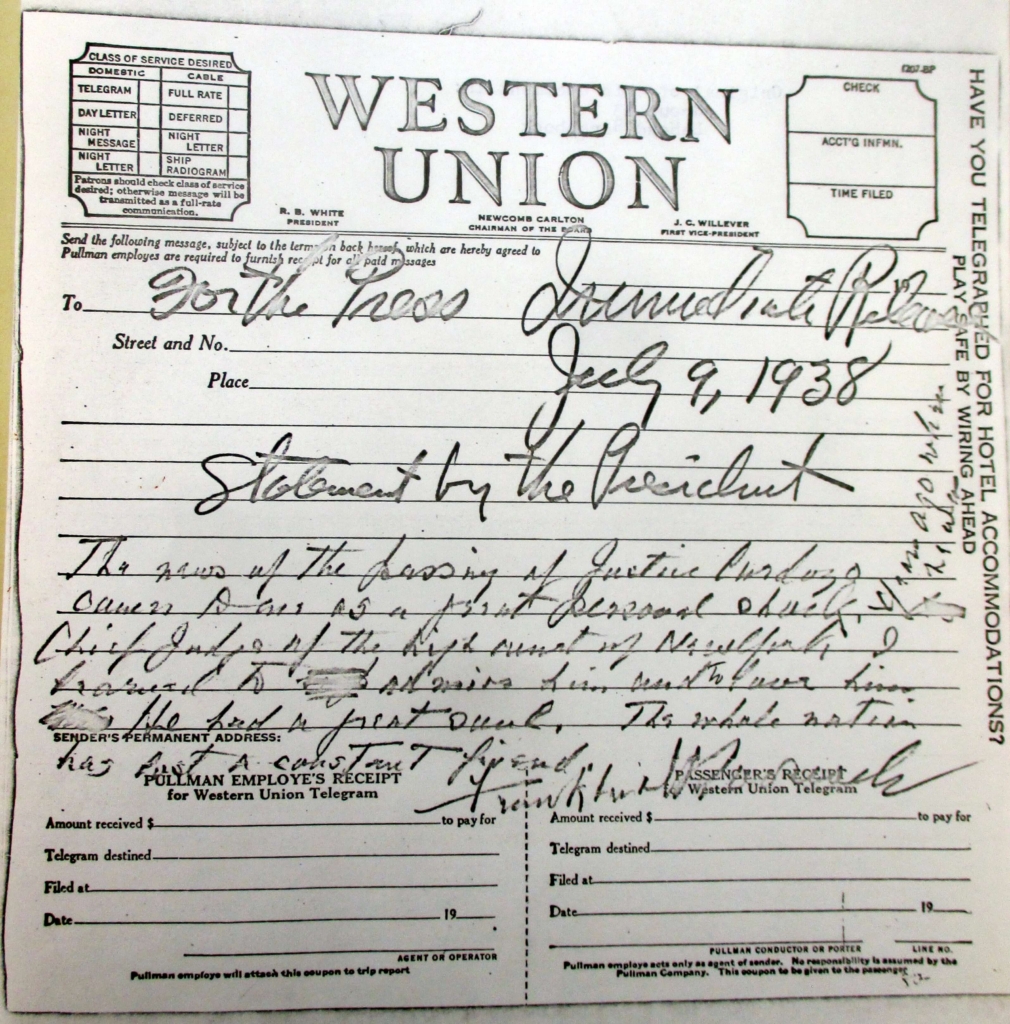 1207-BP
CLASS OF SERVICE DESIRED
DOMESTIC CABLE
TELEGRAM FULL RATE
DAY LETTER DEFERRED
NIGHT MESSAGE NIGHT LETTER
NIGHT LETTER SHIP RADIOGRAM
Patrons should check class of service
desired; otherwise message will be
transmitted as a full-rate
communication.
WESTERN
UNION
R. B. WHITE
PRESIDENT
NEWCOMB CARLTON
CHAIRMAN OF THE BOARD
J. C. WILLEVER
FIRST VICE-PRESIDENT
CHECK
ACCT'G INFMN.
TIME FILED
Send the following message, subject to the terms on back hereof, which are hereby agreed to
Pullman employes are required to furnish receipt for all paid messages
To For the Press Immediate Release
Street and No.
July 9, 1938
Place
Statement by the President
The news of the passing of Justice Cardozo
comes to me as a great personal shock.
Chief Judge of the high court of New York, I
learned to admire him and to love him
He had a great soul. The whole nation
SENDER'S PERMANENT ADDRESS:
has lost a constant friend
Franklin D Roosevelt
HAVE YOU TELEGRAPHED FOR HOTEL ACCOMMODATIONS?
PLAY SAFE BY WIRING AHEAD
PULLMAN EMPLOYE'S RECEIPT
for Western Union Telegram
Amount received $ to pay for
Telegram destined
Filed at
Date 19
AGENT OR OPERATOR
Pullman employe will attach this coupon to trip report
PASSENGER'S RECEIPT
Western Union Telegram
Amount received $ to pay for
Telegram destined
Filed at
Date 19
PULLMAN CONDUCTOR OR PORTER LINE NO.
Pullman employe acts only as agent of sender. No responsibility is assumed by the
Pullman Company. This coupon to be given to the passenger